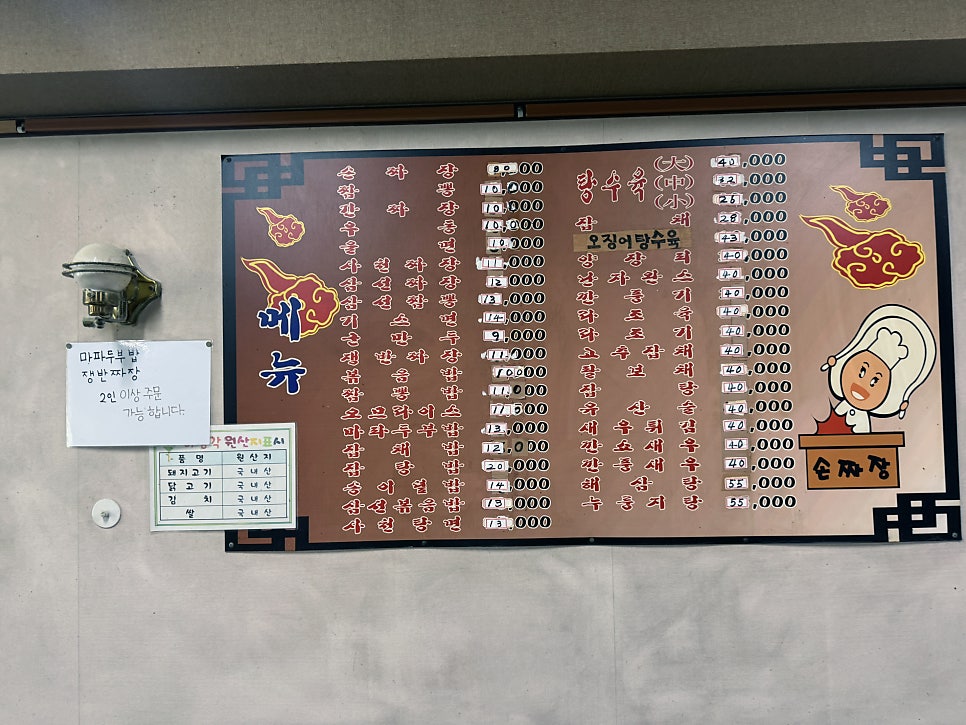 마파두부밥
쟁반짜장
2인 이상 주문
가능합니다.
원산지표시
품명 원산지
돼지고기 국내산
닭고기 국내산
김치 국내산
쌀 국내산
메뉴
손자장
짬뽕 10,000
간자장 10,000
우동 10,000
울면 10,000
사천자장 11,000
삼선자장 12,000
삼선짬뽕 13,000
기스면 14,000
군만두 9,000
쟁반자장
볶음밥
짬뽕밥
오므라이스
마파두부밥 13,000
잡채밥
잡탕밥 20,000
송이덮밥 14,000
삼선볶음밥 13,000
사천탕면 13,000
탕수육 (大) 40,000
(中) 32,000
(小)
잡채 28,000
오징어탕수육 43,000
양장피 40,000
난자완스 40,000
깐풍기 40,000
라조육 40,000
라조기 40,000
고추잡채 40,000
팔보채 40,000
잡탕 40,000
유산슬 40,000
새우튀김 40,000
깐쇼새우 40,000
깐풍새우 40,000
해삼탕 55,000
누룽지탕 55,000
손짜장